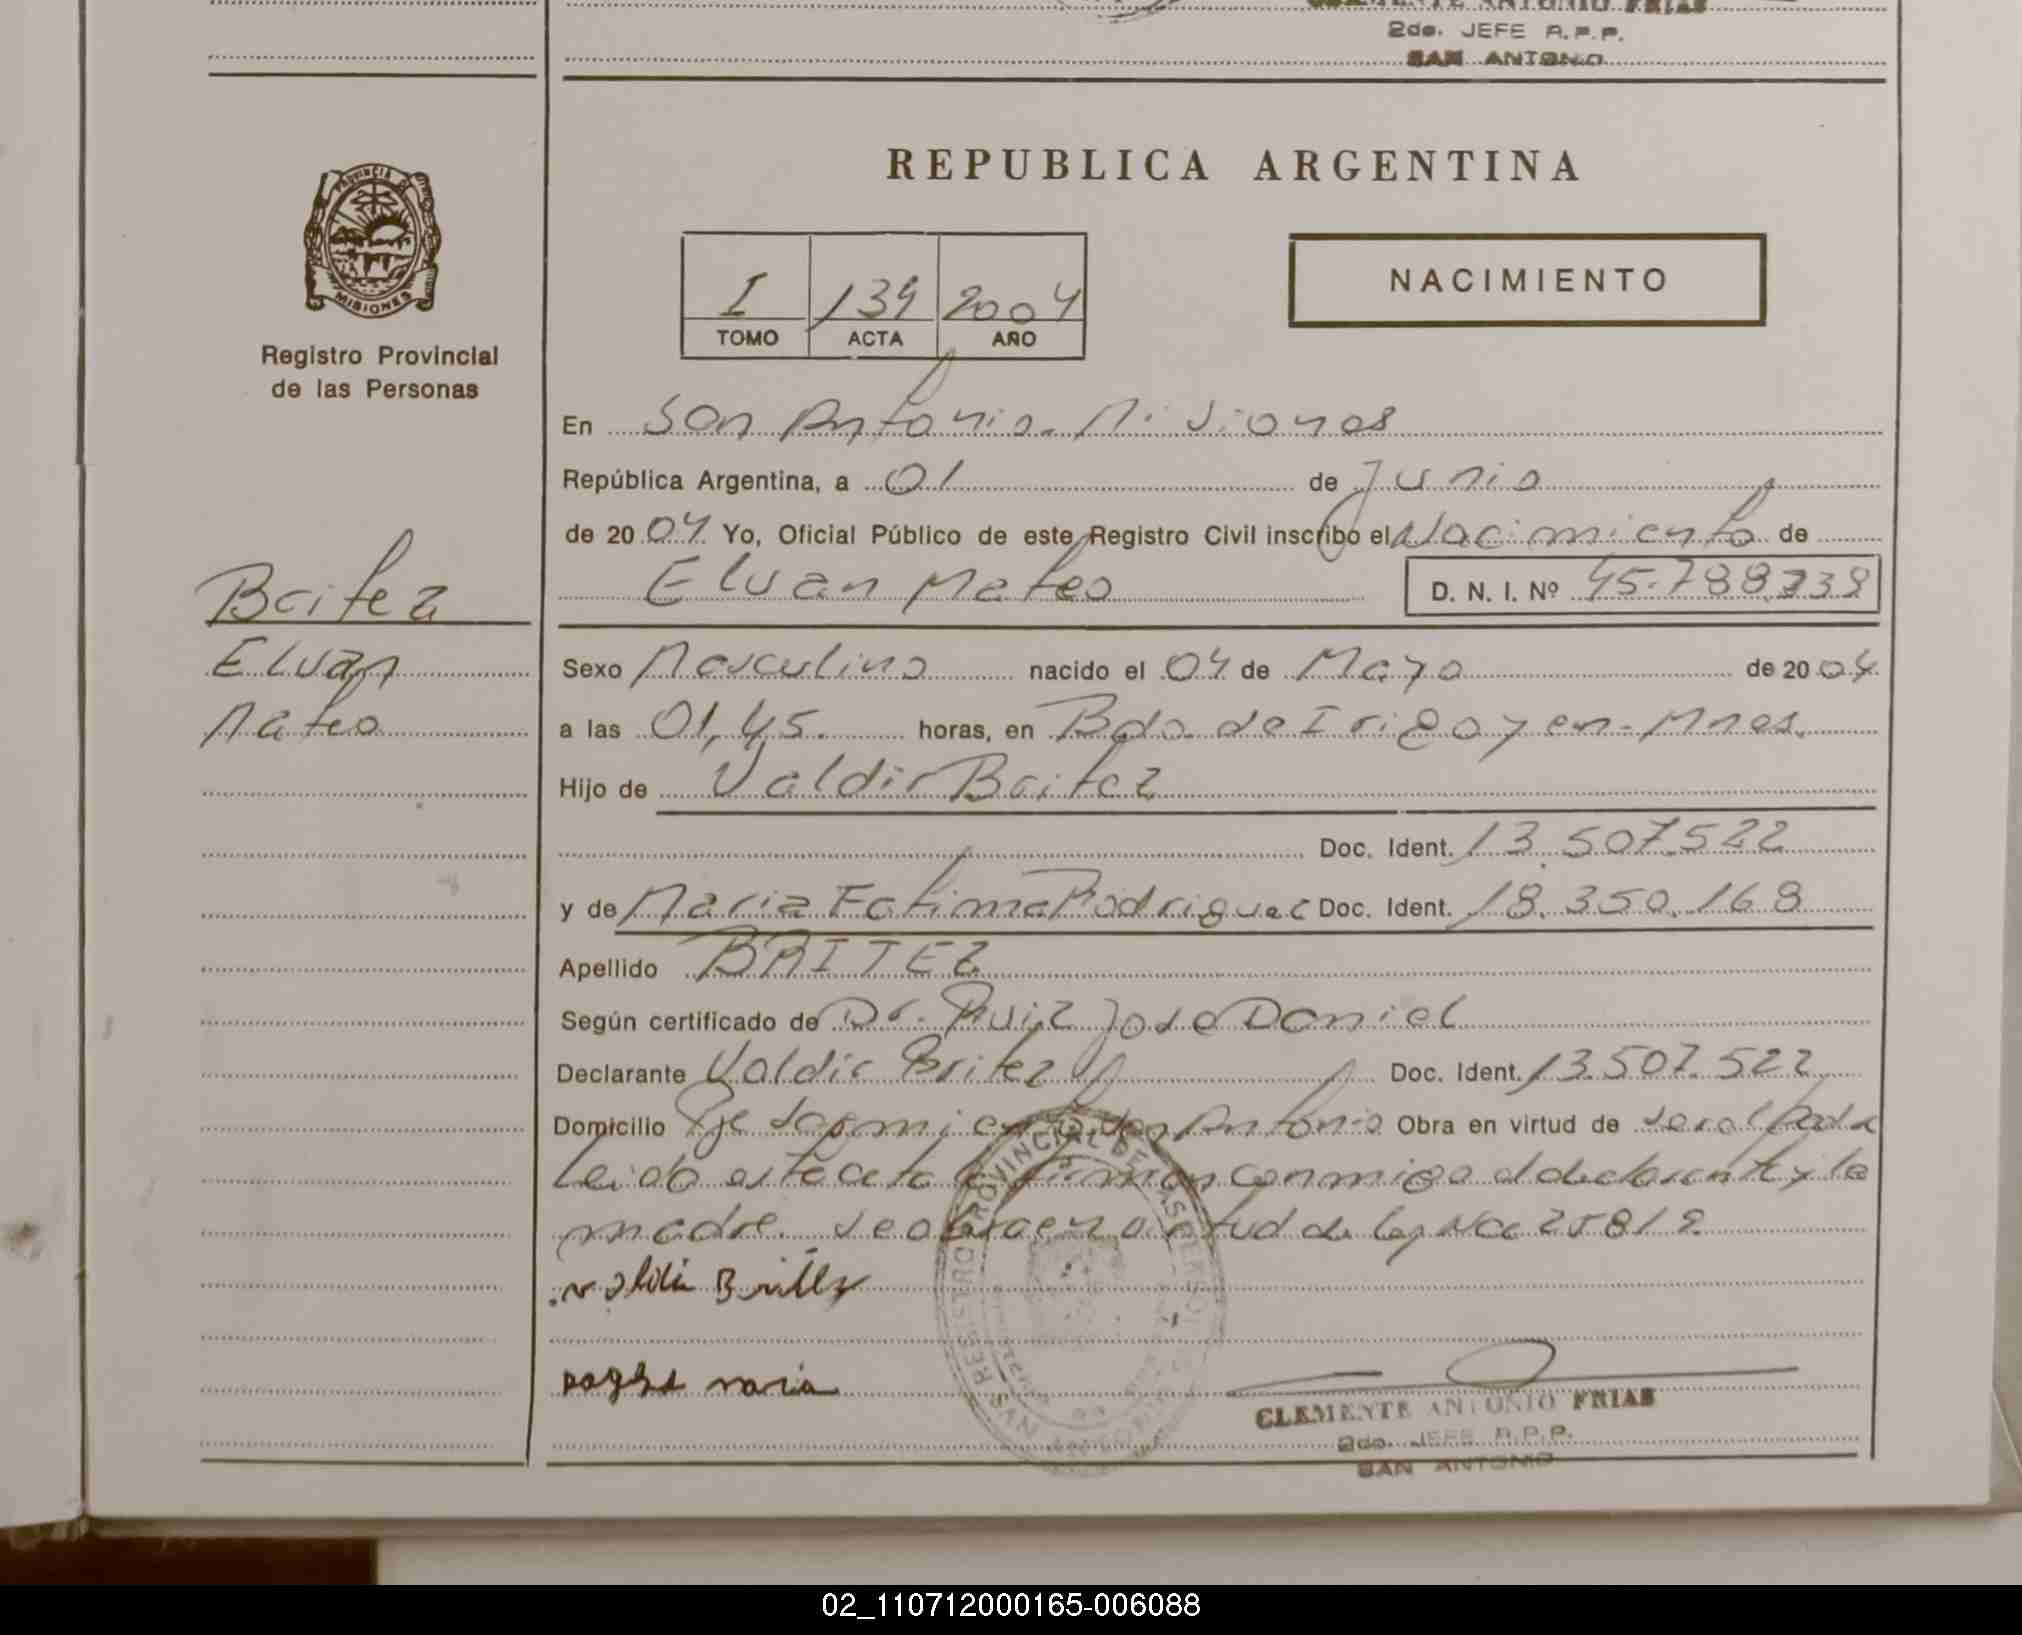 CLEMENTE ANTONIO FRIAS
2do. JEFE R.P.P.
SAN ANTONIO
PROVINCIA DE
MISIONES
Registro Provincial
de las Personas
REPUBLICA ARGENTINA
I 139 2004
TOMO ACTA AÑO
NACIMIENTO
En San Antonio. Misiones
República Argentina, a 01 de Junio
de 2004 Yo, Oficial Público de este Registro Civil inscribo el Nacimiento de
Elvan Mateo D. N. I. Nº 45.788.239
Britez
Elvan
Mateo
Sexo Masculino nacido el 04 de Mayo de 2004
a las 01,45. horas, en Bdo. de Irigoyen - Mnes.
Hijo de Valdir Britez
Doc. Ident. 13.507.522
y de Maria Fatima Rodriguez Doc. Ident. 18.350.168
Apellido BRITEZ
Según certificado de Dr. Ruiz Jose Daniel
Declarante Valdir Britez Doc. Ident. 13.507.522
Domicilio San Antonio Obra en virtud de ser el Padre
Leido el acta la firman conmigo el declarante y la
madre. se obra en virtud de Ley Nro 25819
Britez
maria
REGISTRO PROVINCIAL DE LAS PERSONAS
SAN ANTONIO
CLEMENTE ANTONIO FRIAS
2do. JEFE R.P.P.
SAN ANTONIO
02_110712000165-006088